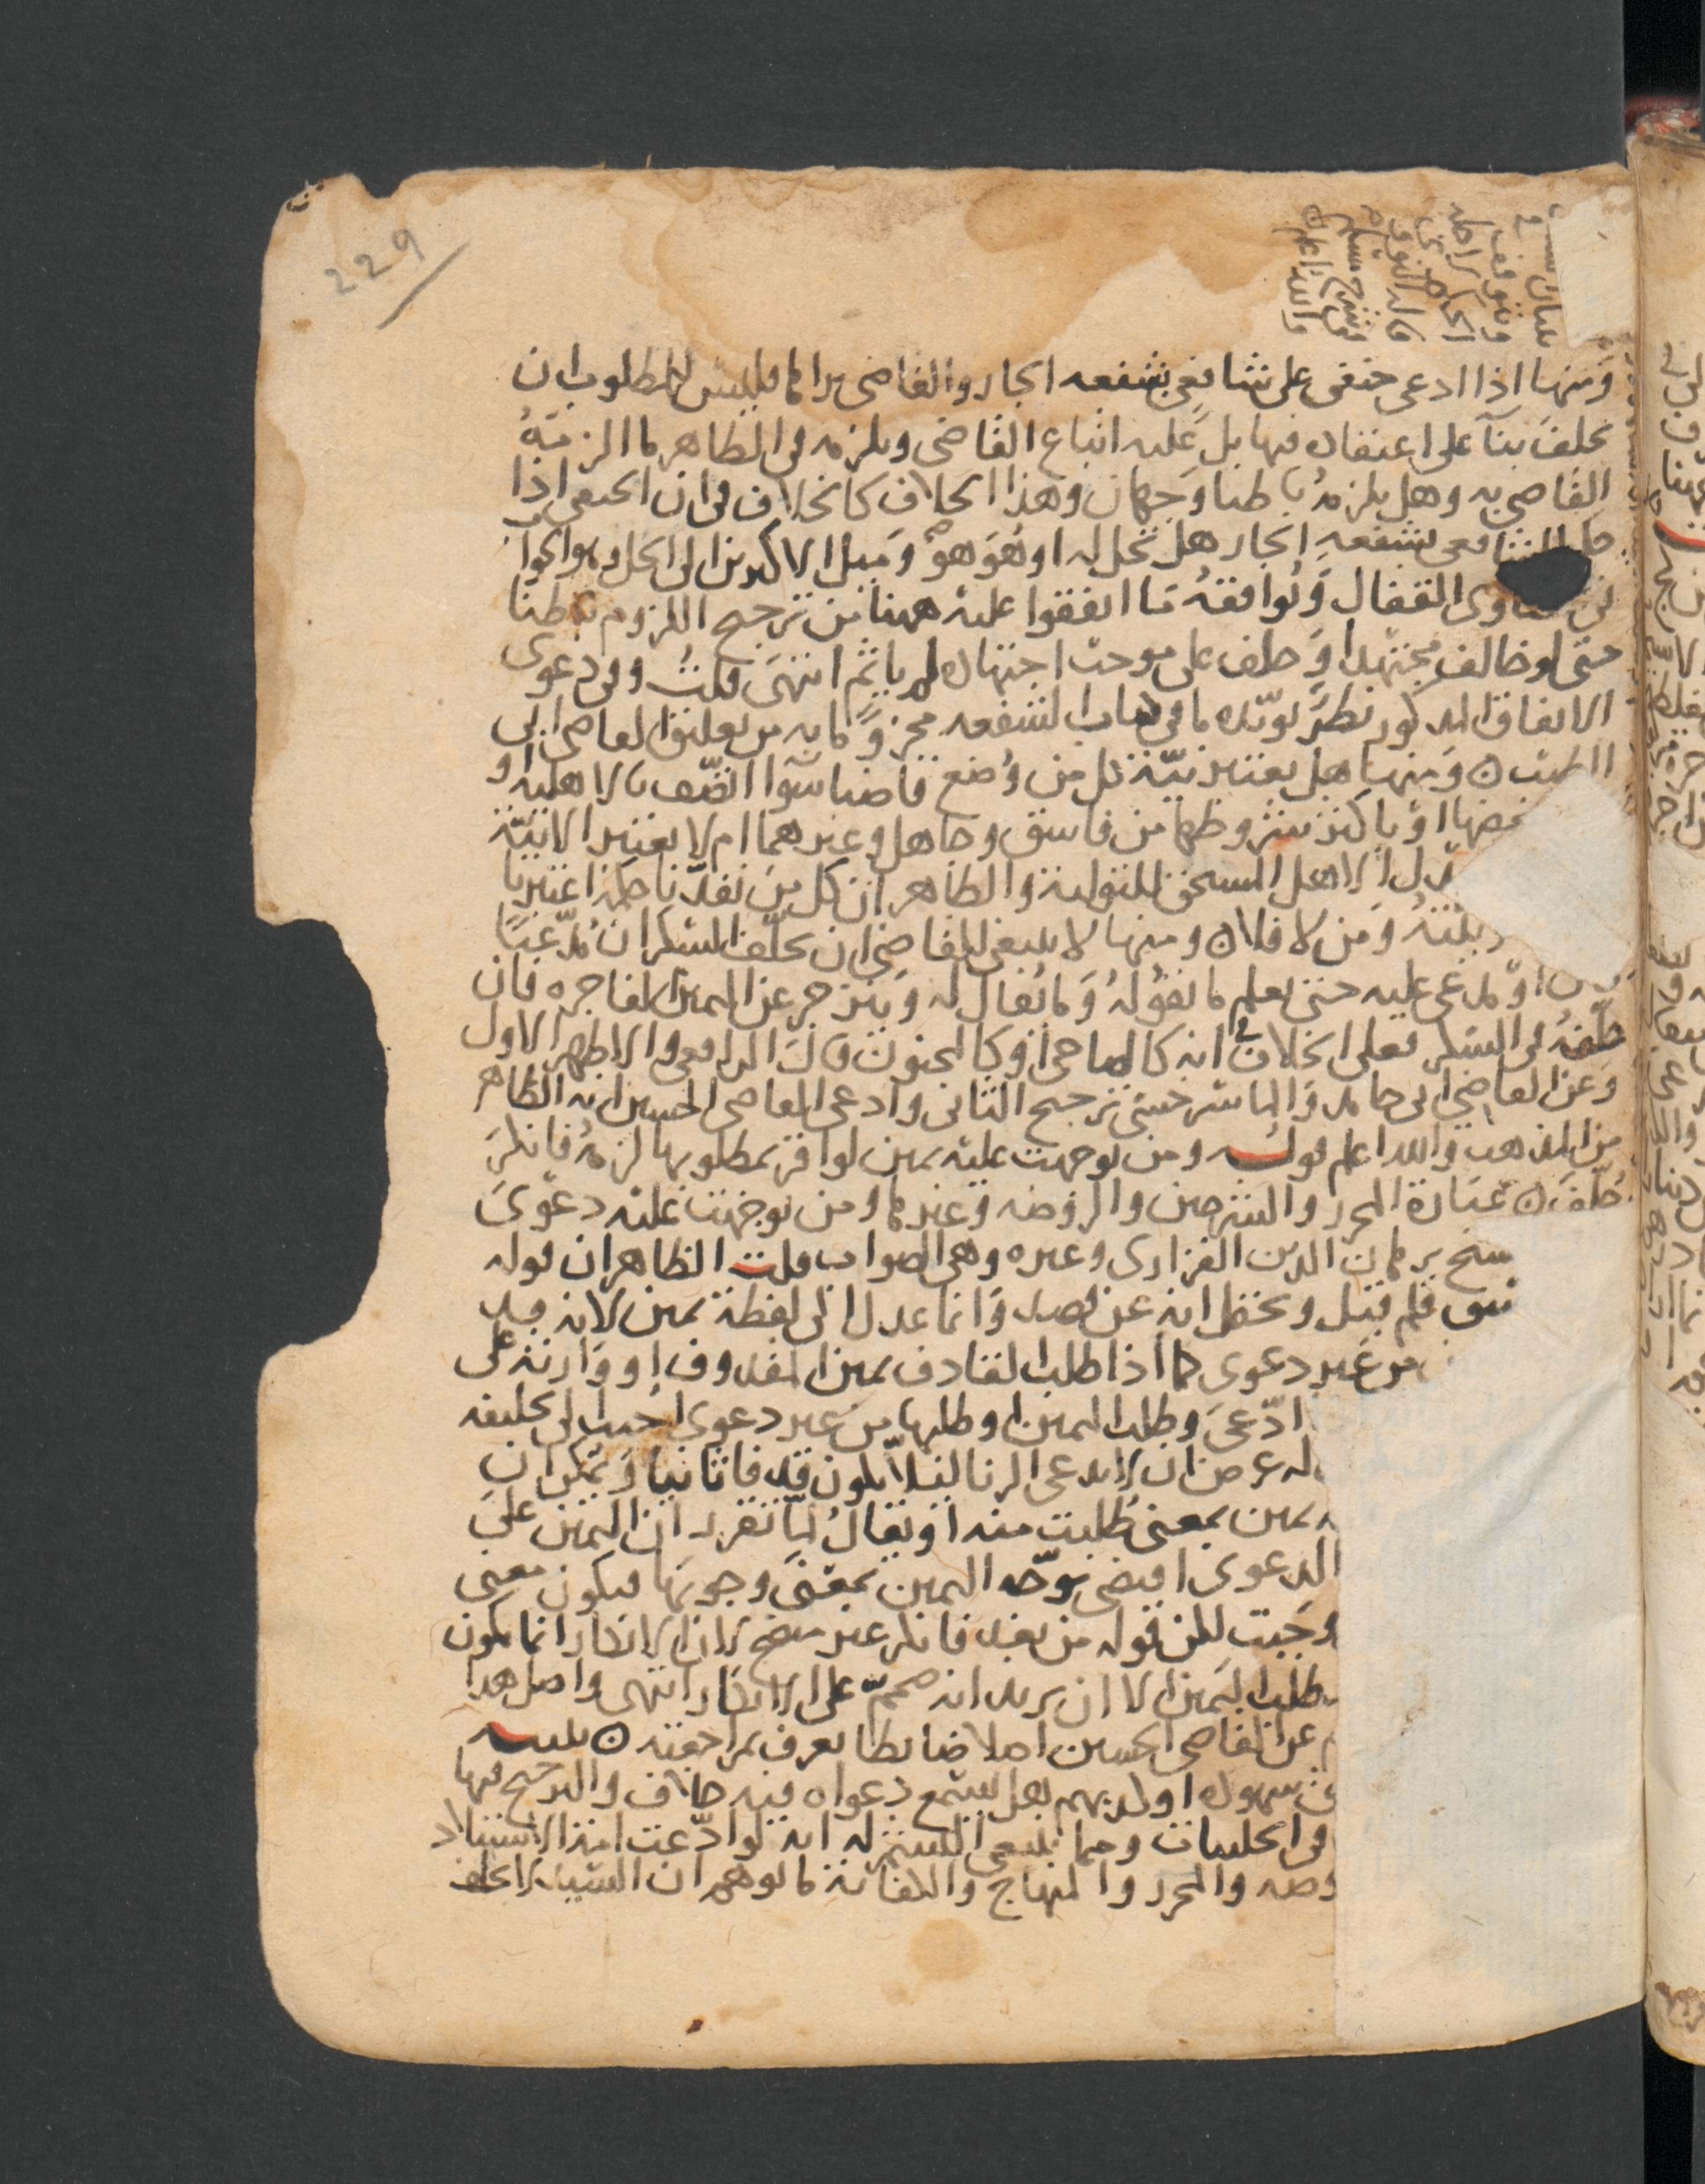 229
ومنها اذا ادعى حنفى على شافعى بشفعه الجار والقاضى يراها فليس للمطلوب ان
يحلف بنآ على اعتقاده فيها بل عليه اتباع القاضى ويلزمه فى الظاهر ما الزمهُ
القاضى به وهل يلزمهُ باطنا وجهان وهذا الخلاف كالخلاف فى ان الحنفى اذا
الشافعى بشفعه الجار هل تحل له او هو هو وميل الاكثرين الى الحل وهو الجواب
فى فتاوى القفال ويُوافقهُ ما اتفقوا عليه ههنا من ترجيح اللزوم باطنا
حتى لو خالف مجتهدا وحلف على موجب اجتهاده لم ياثم انتهى قلتُ وفى دعوى
الاتفاق المذكور نظرٌ يويّده ما فى باب الشفعه محزوًّا به من تعليق القاضى ابى
الطيب ومنها هل يعتبر نيّة كل من وُضع قاضيا سَوآ اتصف بالاهلية او
ببعضها او باكثر شروطها من فاسق وجاهل وغيرهما ام لا يعتبر الا نيّة
العدل الاهل المستحق للتولية والظاهر ان كل من نفذنا حكمه اعتبرنا
نيتهُ ومن لا فلا ومنها لا ينبغى للقاضى ان يحلّف السكران مُدّعيًا
كان او مدعى عليه حتى يعلم ما يقولهُ وما يُقال له وينزجر عن اليمين الفاجره فان
حلّفهُ فى السكر فعلى الخلاف فى انه كالصاحى او كالمجنون قال الرافعى والاظهر الاول
وعن القاضى ابى حامد والماسرجسى ترجيح الثانى وادعى القاضى الحسين انه الظاهر
من المذهب والله اعلم قولـه ومن توجهت عليه يمين لو اقر بمطلوبها لزمهُ فانكرَ
حُلّفَ عبارة المحرر والشرحين والروضه وغيرها ومن توجهت عليه دعوى
الشيخ برهان الدين الفزارى وغيره وهى الصواب قلت الظاهر ان قوله
سبق قلم قيل ويحتمل انه عن قصد وانما عدل الى لفظة يمين لانه قد
من غير دعوى كما اذا طلب القاذف يمين المقذوف او وارثه على
ادّعى وطلب اليمين او طلبها من غير دعوى اجيب الى تحليفه
له غرض ان لا يدعى الزنا لئلا يكون قذفا ثانيا ويمكن ان
يمين بمعنى طلبت منه او يقالُ لمّا تقرر ان اليمين على
الدعوى اقتضى توجّه اليمين بمعنى وجوبها فيكون معنى
وجبت لكن قوله من بعد فانكر غير متضح لان الانكار انما يكون
طلب اليمين الا ان يريد انه صمم على الانكار انتهى واصل هذا
عن القاضى الحسين اصلا ضابطا يعرف بمراجعته تنبيـه
هل تسمع دعواه فيه خلاف والترجيح فيها
فى الجنايات ومما ينبغى التنبه له انه لو ادّعت امة الاستيلاد
والمحرر والمنهاج والكفاية ما يوهم ان السيد لا يحلف